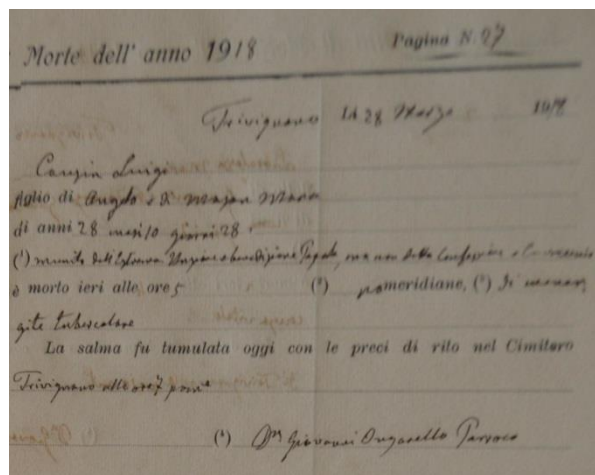 Morte dell' anno 1918 Pagina N. 27
Trivignano li 28 Marzo 1918
Luigi
figlio di Angelo e di Mason Maria
di anni 28 mesi 10 giorni 28
(¹) munito dell'Estrema Unzione e benedizione Papale, ma non della Confessione e
è morto ieri alle ore 5 (²) pomeridiane, (³) di menin
gite tubercolare
La salma fu tumulata oggi con le preci di rito nel Cimitero
Trivignano alle ore 7 pom.e
(⁴) Giovanni Ongarello Parroco